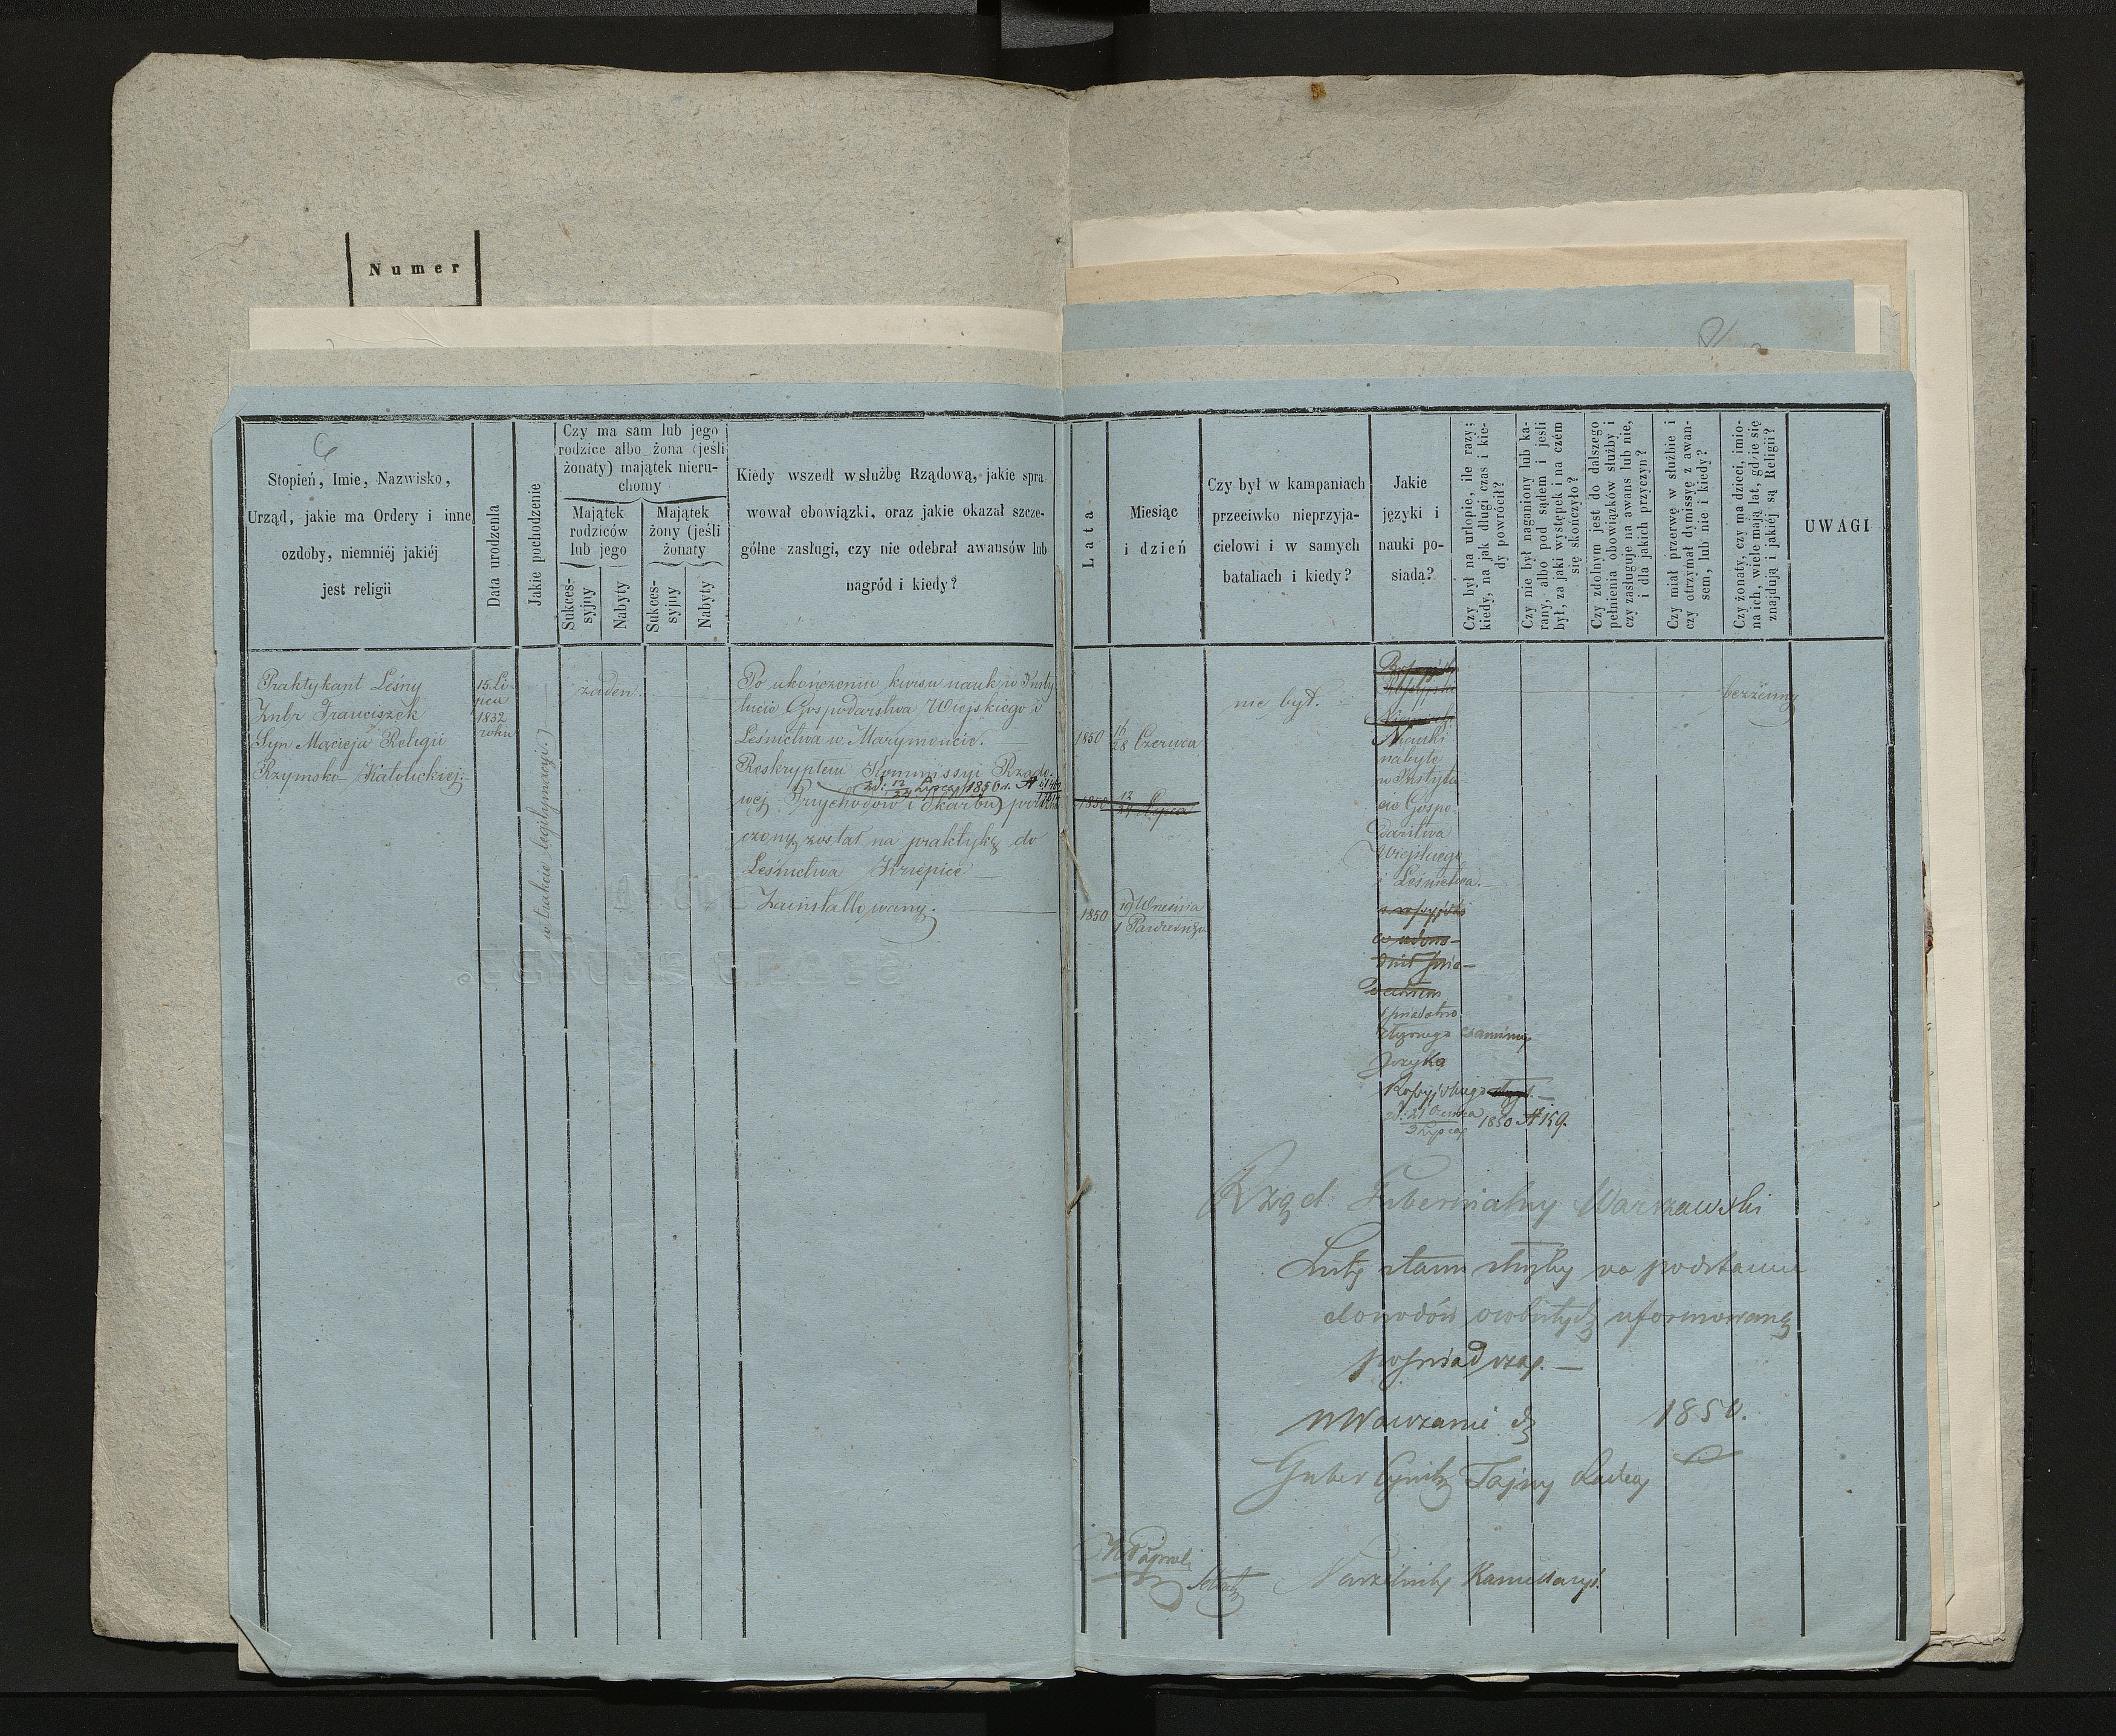 Numer
6
Stopień, Imie, Nazwisko,
Urząd, jakie ma Ordery i inne
ozdoby, niemniéj jakiéj
jest religii
Data urodzenia
Jakie pochodzenie
Czy ma sam lub jego
rodzice albo żona (jeśli
żonaty) majątek nieru-
chomy
Majątek
rodziców
lub jego
Majątek
żony (jeśli
żonaty
Sukces-
syjny
Nabyty
Sukces-
syjny
Nabyty
Kiedy wszedł w służbę Rządową, jakie spra-
wował obowiązki, oraz jakie okazał szcze-
gólne zasługi, czy nie odebrał awansów lub
nagród i kiedy?
Lata
Miesiąc
i dzień
Czy był w kampaniach
przeciwko nieprzyja-
cielowi i w samych
bataliach i kiedy?
Jakie
języki i
nauki po-
siada?
Czy był na urlopie, ile razy;
kiedy, na jak długi czas i kie-
dy powrócił?
Czy nie był naganiony lub ka-
rany, albo pod sądem i jeśli
był, za jaki występek i na czém
się skończyło?
Czy zdolnym jest do dalszego
pełnienia obowiązków służby i
czy zasługuje na awans lub nie,
i dla jakich przyczyn?
Czy miał przerwę w służbie i
czy otrzymał dymissyę z awan-
sem, lub nie i kiedy?
Czy żonaty, czy ma dzieci, imio-
na ich, wiele mają lat, gdzie się
znajdują i jakiéj są Religii?
UWAGI
Praktykant Leśny
Znbr Franciszek
Syn Macieja Religii
Rzymsko-Katolickiej.
15 Li-
pca
1832
roku
w trakcie legitymacyi.)
żaden.
Po ukończeniu kursu nauk w Insty
tucie Gospodarstwa Wiejskiego i
Leśnictwa w Marymoncie.
Reskryptem Kommissyi Rządo-
zd: 12/24 Lipca 1850 r. N
wej Przychodów i Skarbu)
czony został na praktykę do
Leśnictwa Krzepice
Zainstallowany.
1850
16/28 Czerwca
1850
12/24 Lipca
1850
19 Wresnia
1 Pazdziernika
nie był.
Nauki
nabyte
w Instytu
cie Gospo-
darstwa
Wiejskiego
i Leśnictwa.
złożonego examinu
Języka
Rossyjskiego
d: 21 Czerwca
3 Lipca 1850 N 159.
bezżenny
Rząd Gubernialny Warszawski
Listę stanu służby na podstawie
dowodów osobistych uformowaną
poświadcza. —
w Warszawie d. 1850.
Guber Cywilny Tajny Radca
Naczelnik Kancellaryi.